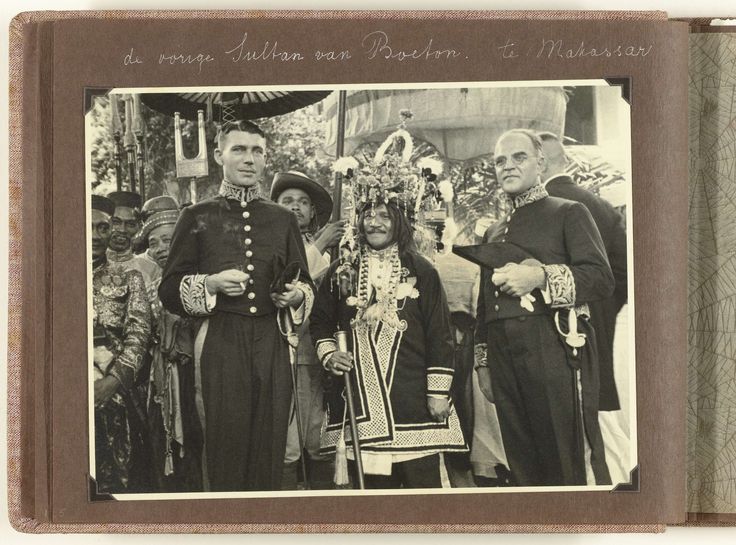 de vorige Sultan van Boeton. te Makassar